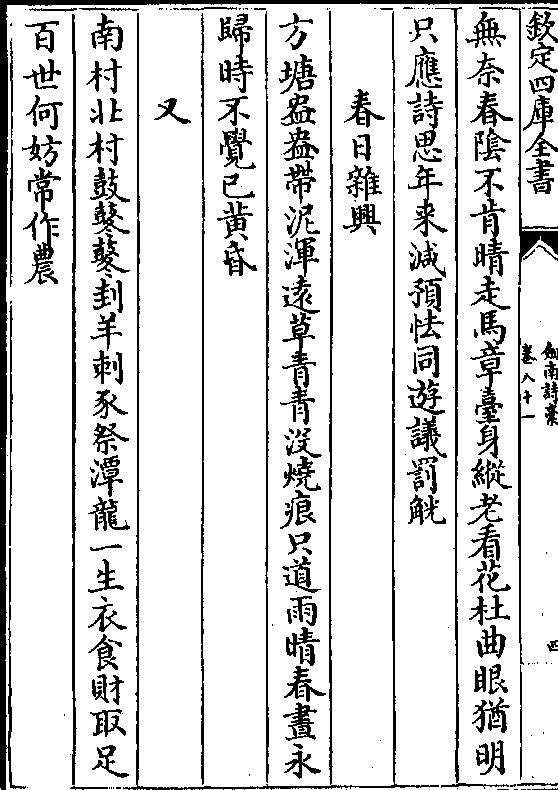 欽定四庫全書
劍南詩藳
卷八十一
四
無奈春陰不肯晴走馬章臺身縱老看花杜曲眼猶明
只應詩思年来減預怯同遊議罰觥
春日雜興
方塘盎盎帶泥渾遠草青青没燒痕只道雨晴春晝永
歸時不覺已黄昏
又
南村北村鼓鼕鼕刲羊刺豕祭潭龍一生衣食財取足
百世何妨常作農